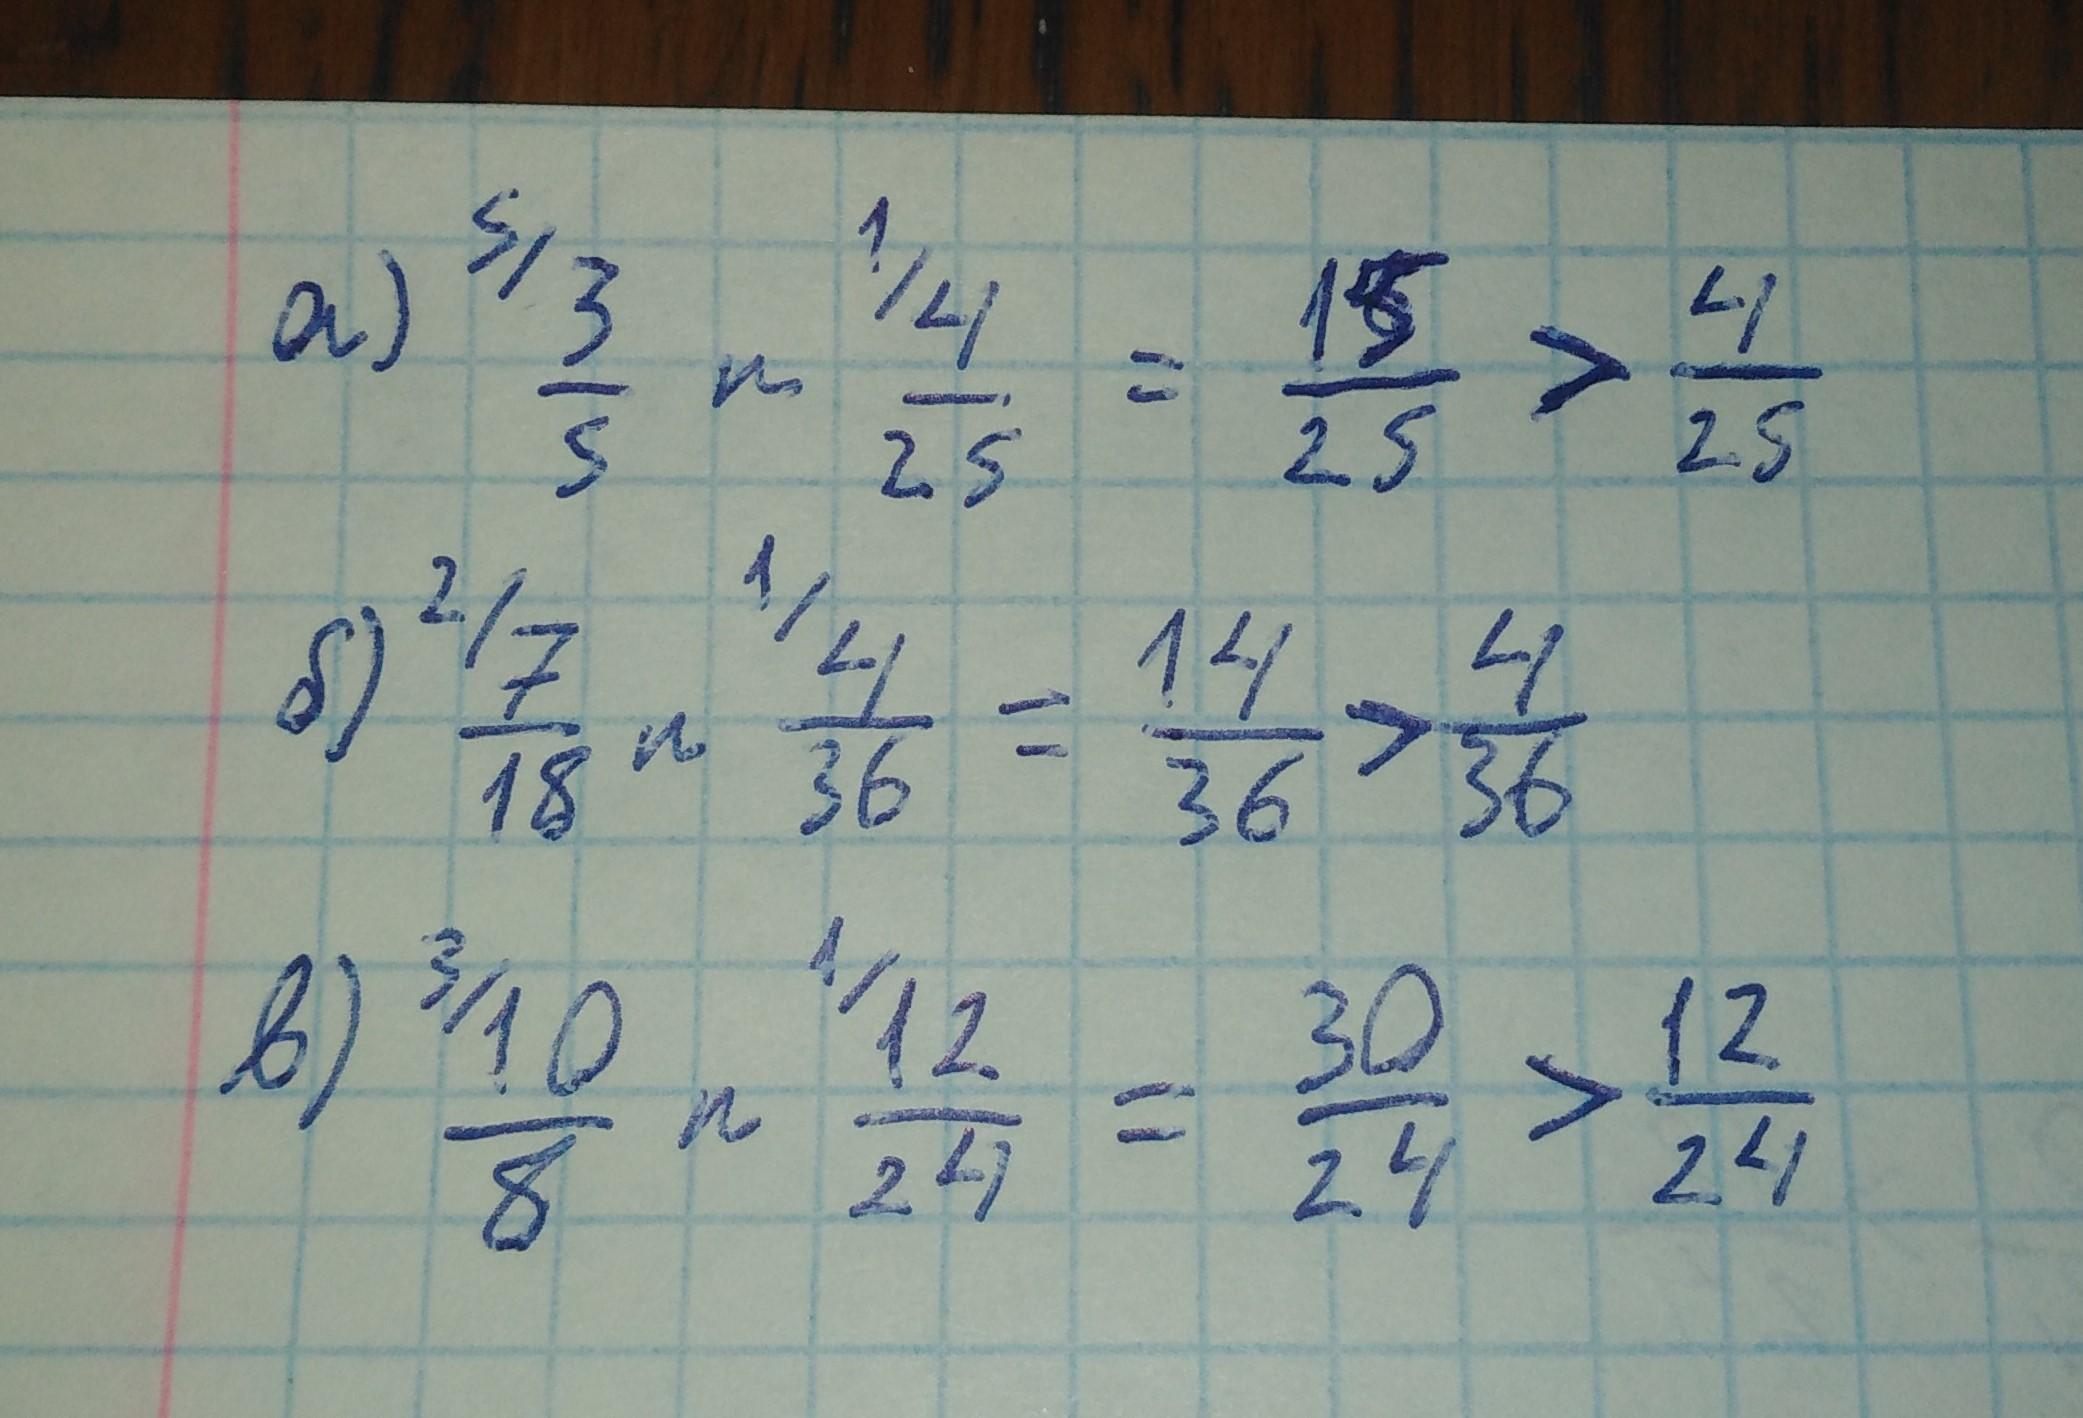 а) 5/ 3/5 и 1/ 4/25 = 15/25 > 4/25
б) 2/ 7/18 и 1/ 4/36 = 14/36 > 4/36
в) 3/ 10/8 и 1/ 12/24 = 30/24 > 12/24